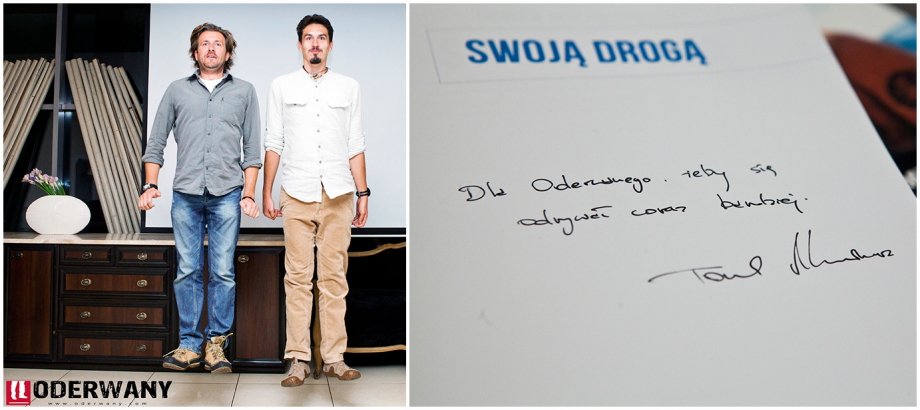 ODERWANY
www.oderwany.com
SWOJĄ DROGĄ
Dla Oderwanego. żeby się
odrywał coraz bardziej.